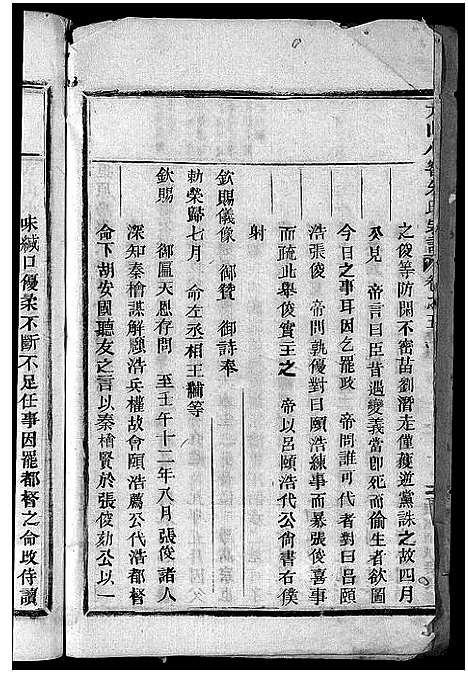 之俊等防閑不密苗劉潛走僅獲逆黨誅之故四月
入見　帝言曰臣昔遇變義當卽死而偷生者欲圖
今日之事耳因乞罷政　帝問誰可代者對曰呂頤
浩張俊　帝問孰優對曰頤浩練事而暴張俊喜事
而疏此舉俊實主之　帝以呂頤浩代公尙書右僕
射
欽賜儀像　御贊　御詩奉
勅榮歸七月　命左丞相王黼等
欽賜　御匾天恩存問　至壬午十二年八月張俊諸人
深知秦檜謀解頤浩兵權故會頤浩薦公代浩都督
命下胡安國聽友之言以秦檜賢於張俊劾公以一
味緘口優柔不斷不足任事因罷都督之命改侍讀